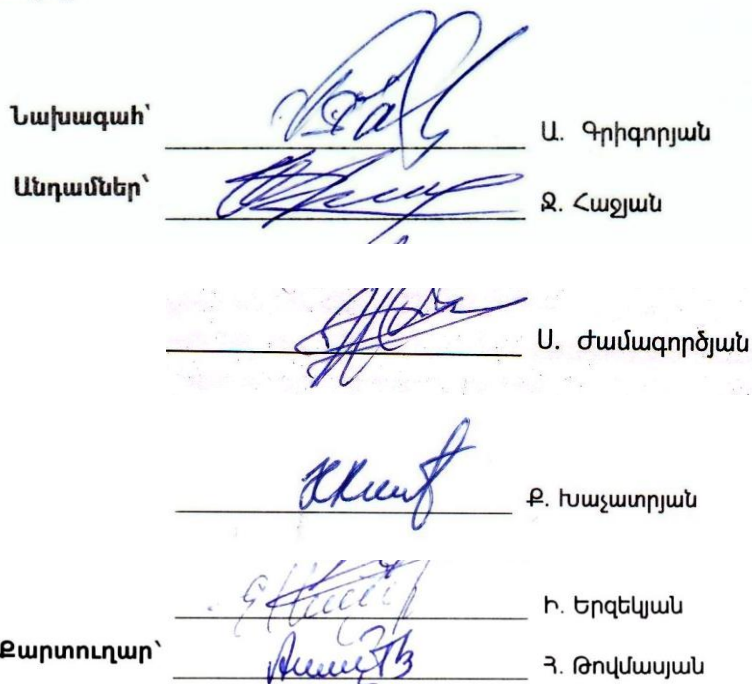 Նախագահ՝ Ա. Գրիգորյան
Անդամներ՝ Ջ. Հաջյան
Ս. Ժամագործյան
Ք. Խաչատրյան
Ի. Երզեկյան
Քարտուղար՝ Հ. Թովմասյան